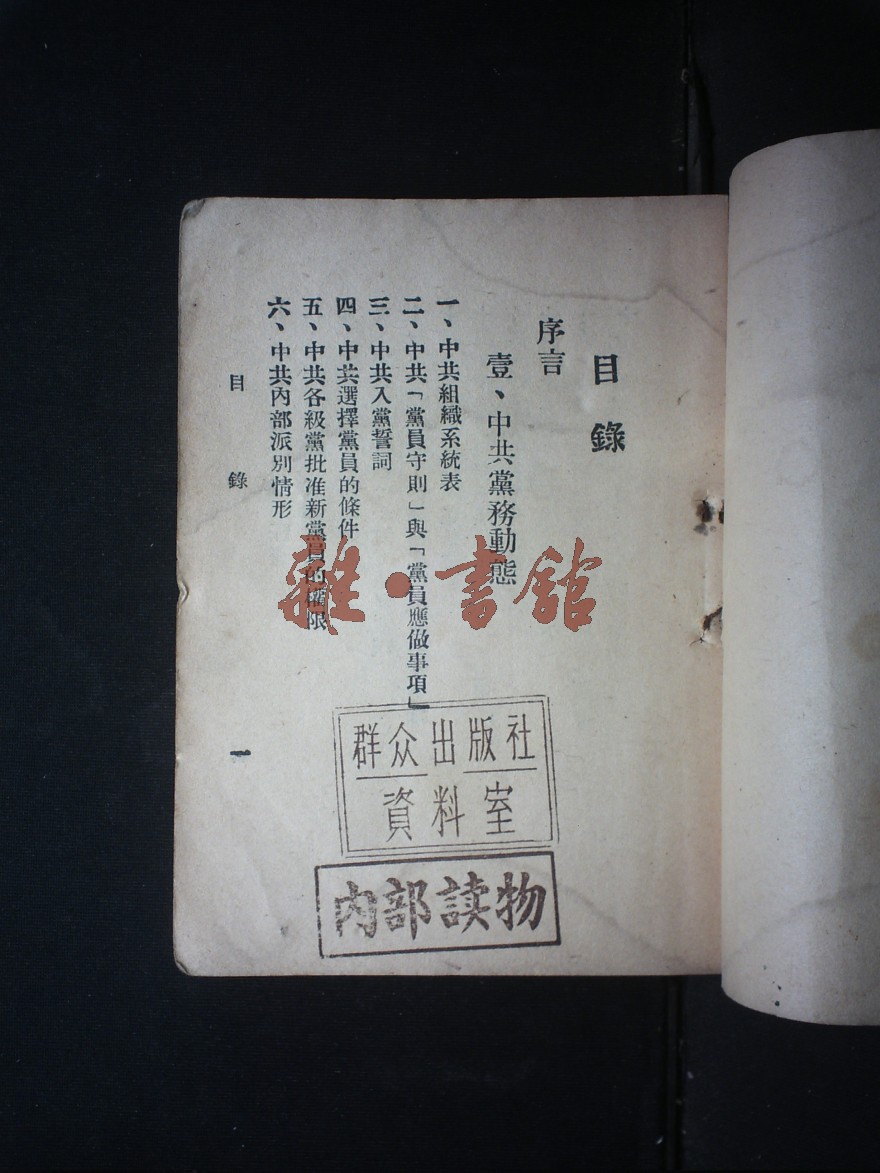 目錄
序言
壹、中共黨務動態
一、中共組織系統表
二、中共「黨員守則」與「黨員應做事項」
三、中共入黨誓詞
四、中共選擇黨員的條件
五、中共各級黨批准新黨員的權限
六、中共內部派別情形
目錄
一
雜·書館
群众出版社
資料室
内部读物